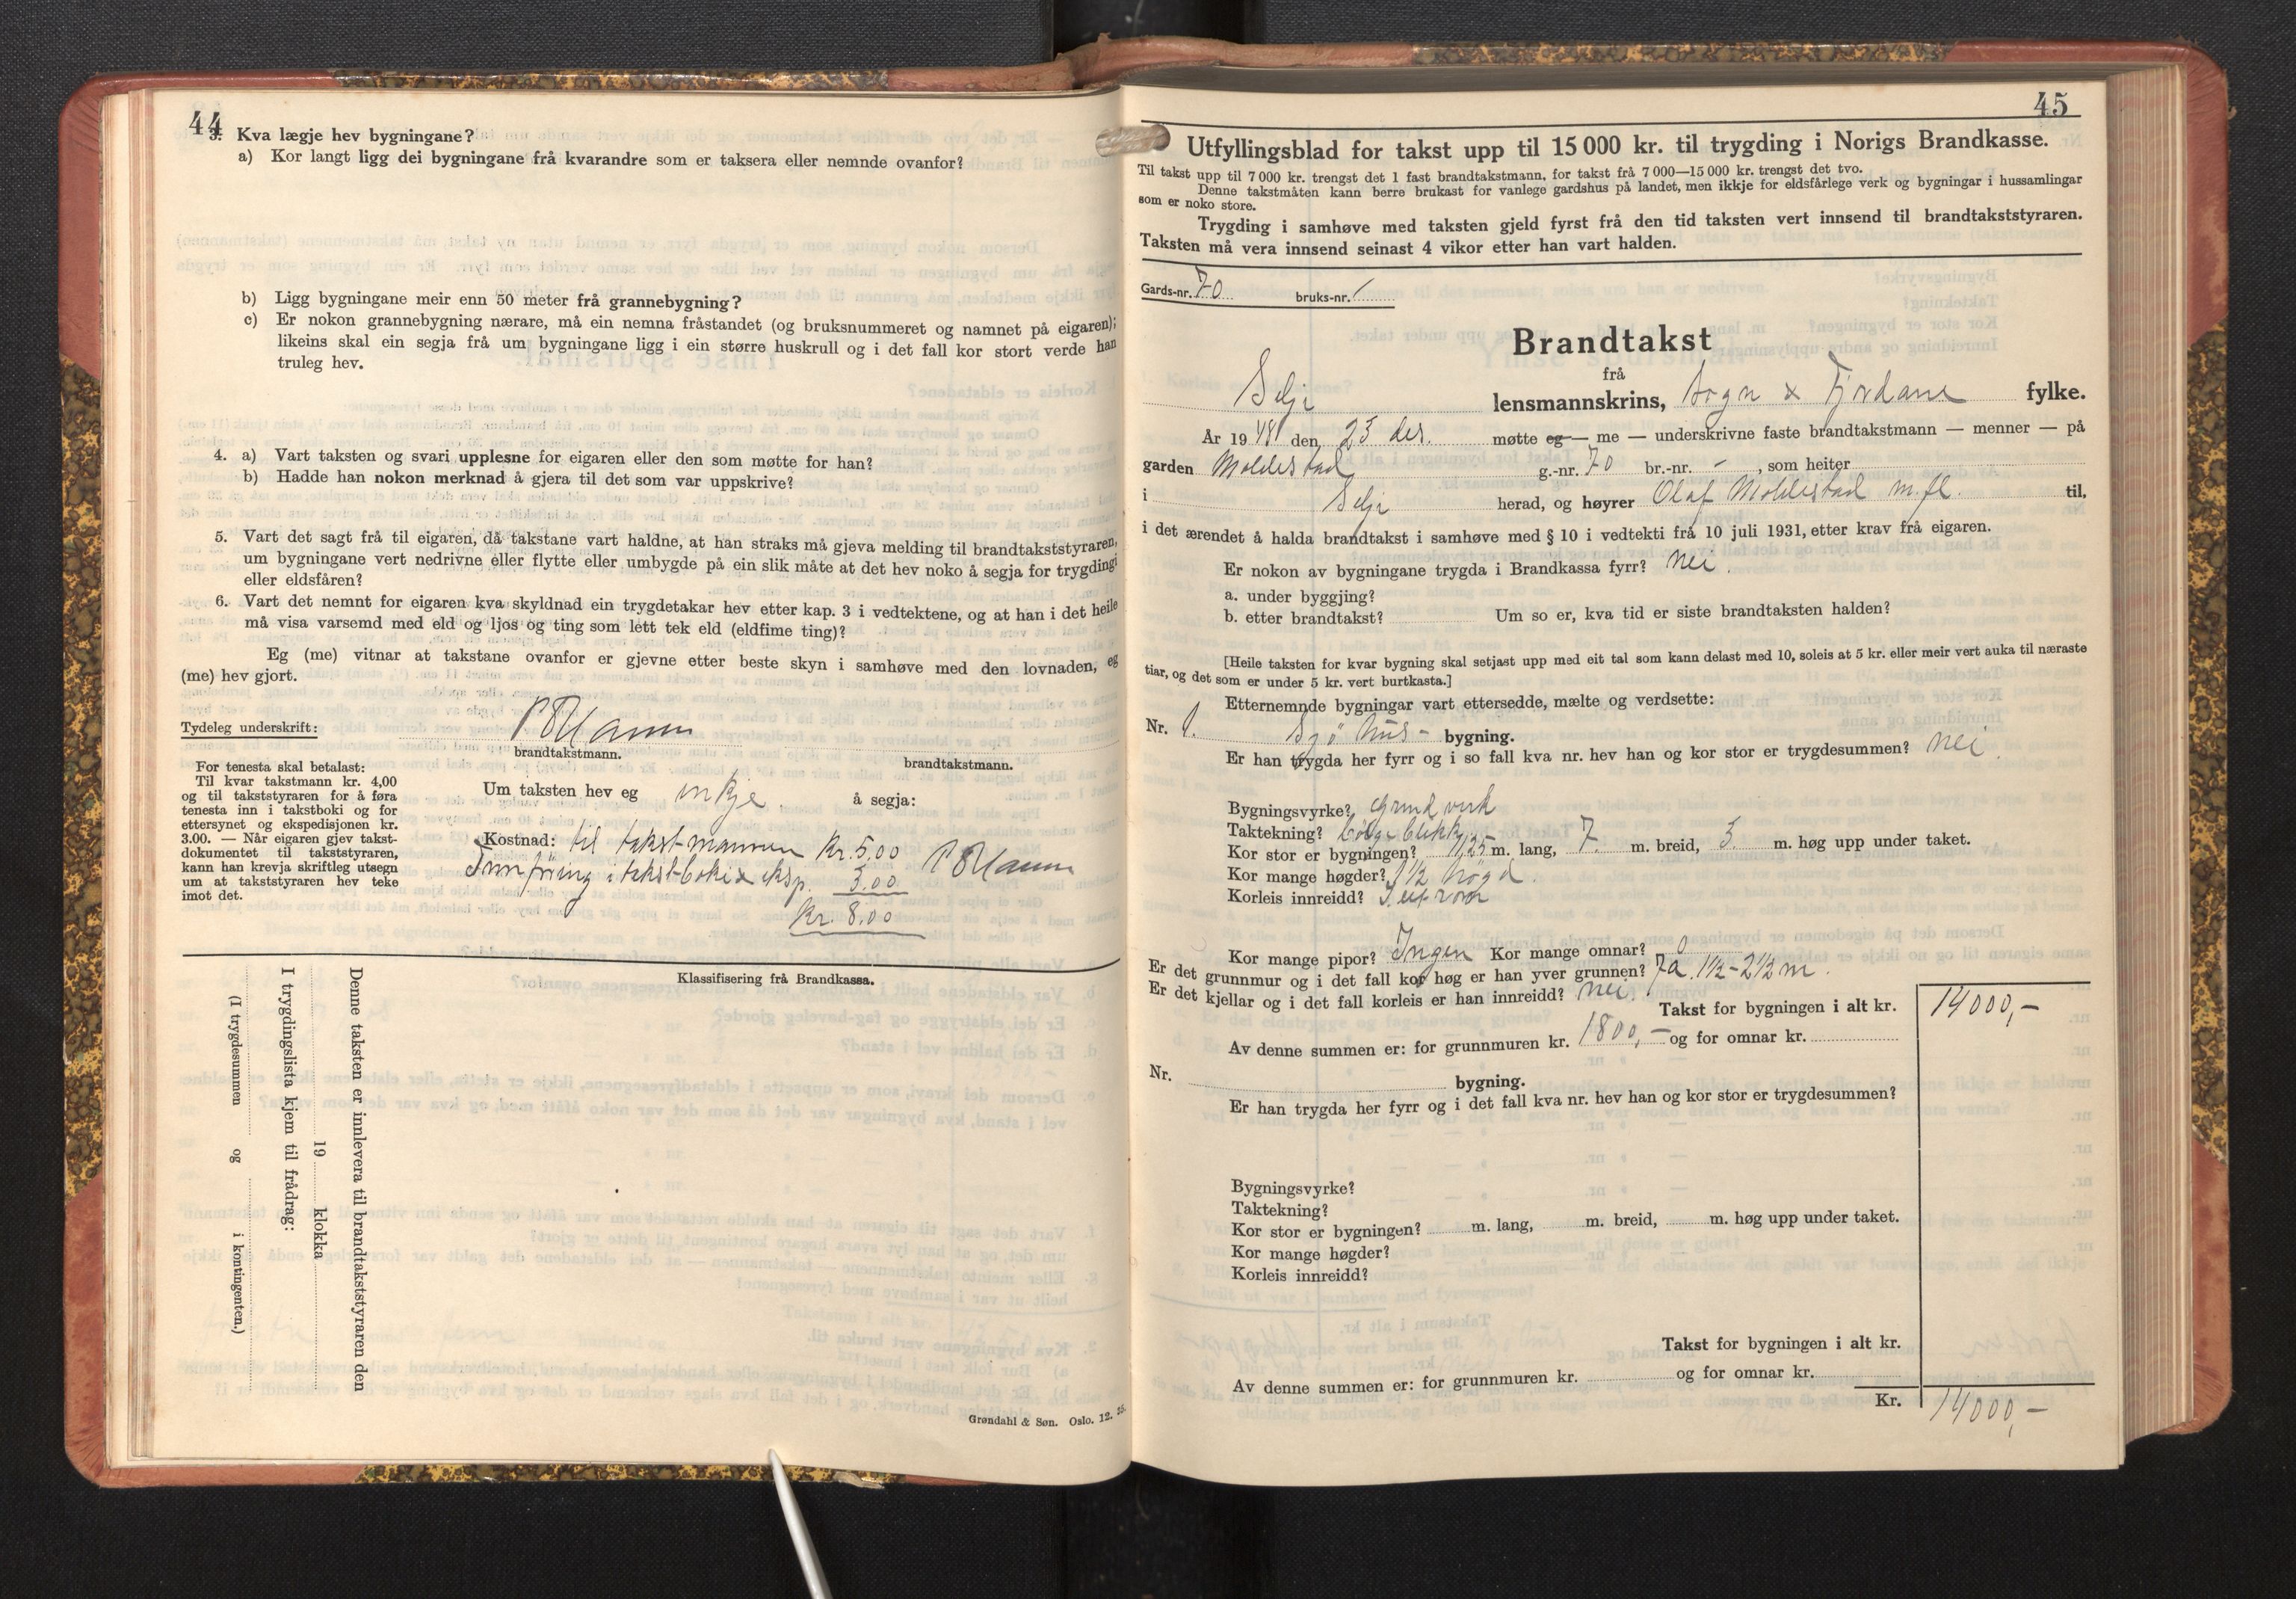 44
3. Kva lægje hev bygningane?
a) Kor langt ligg dei bygningane frå kvarandre som er taksera eller nemnde ovanfor?
b) Ligg bygningane meir enn 50 meter frå grannebygning?
c) Er nokon grannebygning nærare, må ein nemna fråstandet (og bruksnummeret og namnet på eigaren);
likeins skal ein segja frå um bygningane ligg i ein større huskrull og i det fall kor stort verde han
truleg hev.
4. a) Vart taksten og svari upplesne for eigaren eller den som møtte for han?
b) Hadde han nokon merknad å gjera til det som var uppskrive?
5. Vart det sagt frå til eigaren, då takstane vart haldne, at han straks må gjeva melding til brandtakststyraren,
um bygningane vert nedrivne eller flytte eller umbygde på ein slik måte at det hev noko å segja for trygdingi
eller eldsfåren?
6. Vart det nemnt for eigaren kva skyldnad ein trygdetakar hev etter kap. 3 i vedtektene, og at han i det heile
må visa varsemd med eld og ljos og ting som lett tek eld (eldfime ting)?
Eg (me) vitnar at takstane ovanfor er gjevne etter beste skyn i samhøve med den lovnaden, eg
(me) hev gjort.
Tydeleg underskrift:
brandtakstmann. brandtakstmann.
For tenesta skal betalast:
Til kvar takstmann kr. 4,00
og til takststyraren for å føra
tenesta inn i takstboki og for
ettersynet og ekspedisjonen kr.
3.00. — Når eigaren gjev takst-
dokumentet til takststyraren,
kann han krevja skriftleg utsegn
um at takststyraren hev teke
imot det.
Um taksten hev eg inkje å segja:
Kostnad: til takstmannen Kr. 5,00
Innføring i takstboki & eksp. 3.00
Kr. 8.00
Klassifisering frå Brandkassa.
Denne taksten er innlevera til brandtakststyraren den
19 klokka
I trygdingslista kjem til frådrag:
(I trygdesummen og i kontingenten.)
Grøndahl & Søn. Oslo. 12. 35.
45
Utfyllingsblad for takst upp til 15 000 kr. til trygding i Norigs Brandkasse.
Til takst upp til 7 000 kr. trengst det 1 fast brandtakstmann, for takst frå 7 000—15 000 kr. trengst det tvo.
Denne takstmåten kann berre brukast for vanlege gardshus på landet, men ikkje for eldsfårlege verk og bygningar i hussamlingar
som er noko store.
Trygding i samhøve med taksten gjeld fyrst frå den tid taksten vert innsend til brandtakststyraren.
Taksten må vera innsend seinast 4 vikor etter han vart halden.
Gards-nr. 70 bruks-nr. /
Brandtakst
frå
Selje lensmannskrins, Sogn & Fjordane fylke.
År 1948 den 23 des. møtte eg — me — underskrivne faste brandtakstmann — menner — på
garden Moldestad g.-nr. 70 br.-nr. - , som heiter
i Selje herad, og høyrer Olaf Moldestad m.fl. til,
i det ærendet å halda brandtakst i samhøve med § 10 i vedtekti frå 10 juli 1931, etter krav frå eigaren.
Er nokon av bygningane trygda i Brandkassa fyrr? nei.
a. under byggjing?
b. etter brandtakst? Um so er, kva tid er siste brandtaksten halden?
[Heile taksten for kvar bygning skal setjast upp med eit tal som kann delast med 10, soleis at 5 kr. eller meir vert auka til næraste
tiar, og det som er under 5 kr. vert burtkasta.]
Etternemnde bygningar vart ettersedde, mælte og verdsette:
Nr. 1. Sjöhus- bygning.
Er han trygda her fyrr og i so fall kva nr. hev han og kor stor er trygdesummen? nei.
Bygningsvyrke? Grindverk
Taktekning? bölgeblikk
Kor stor er bygningen? 11,25 m. lang, 7. m. breid, 3. m. høg upp under taket.
Kor mange høgder? 1½ högd.
Korleis innreidd?
Kor mange pipor? Ingen Kor mange omnar? 0
Er det grunnmur og i det fall kor høg er han yver grunnen? Ja. 1½-2½ m.
Er det kjellar og i det fall korleis er han innreidd? nei.
Takst for bygningen i alt kr. 14000,-
Av denne summen er: for grunnmuren kr. 1800,- og for omnar kr.
Nr. bygning.
Er han trygda her fyrr og i det fall kva nr. hev han og kor stor er trygdesummen?
Bygningsvyrke?
Taktekning?
Kor stor er bygningen? m. lang, m. breid, m. høg upp under taket.
Kor mange høgder?
Korleis innreidd?
Takst for bygningen i alt kr.
Av denne summen er: for grunnmuren kr. og for omnar kr.
Kr. 14000,-